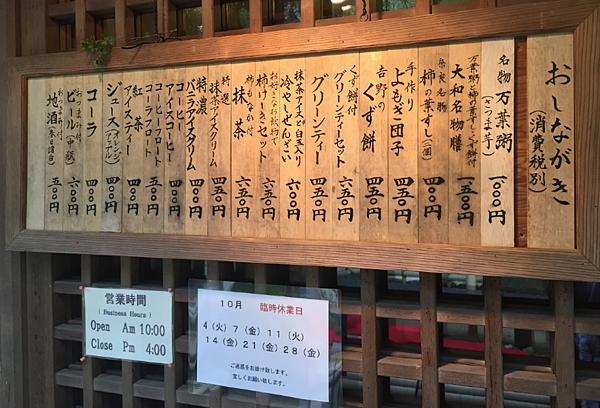 おしながき
(消費税別)
名物 万葉粥 (さつま芋) 一〇〇〇円
万葉粥と柿の葉ずし、くず餅
大和名物膳 一五〇〇円
奈良名物
柿の葉ずし(二個) 四〇〇円
手作り
よもぎ団子 四五〇円
吉野の
くず餅 四五〇円
くず餅付
グリーンティーセット 六五〇円
グリーンティー 四五〇円
抹茶アイスと白玉入り
冷やしぜんざい 六〇〇円
お好きなお飲物で
柿けーきセット 六五〇円
柿もなか付
抹茶 六五〇円
特選
抹茶アイスクリーム 四五〇円
特濃
バニラアイスクリーム 四五〇円
コーヒー 四〇〇円
アイスコーヒー 四〇〇円
コーヒーフロート
コーラフロート 五五〇円
紅茶
アイスティー 四〇〇円
ジュース(オレンジ アップル) 四〇〇円
コーラ 四〇〇円
おつまみ付
ビール(中瓶) 六五〇円
おつまみ付
地酒(春日諸白) 五五〇円
営業時間
( Business Hours )
Open Am 10:00
Close Pm 4:00
10月 臨時休業日
4(火) 7(金) 11(火)
14(金) 21(金) 28(金)
ご迷惑をお掛け致します。
宜しくお願い致します。